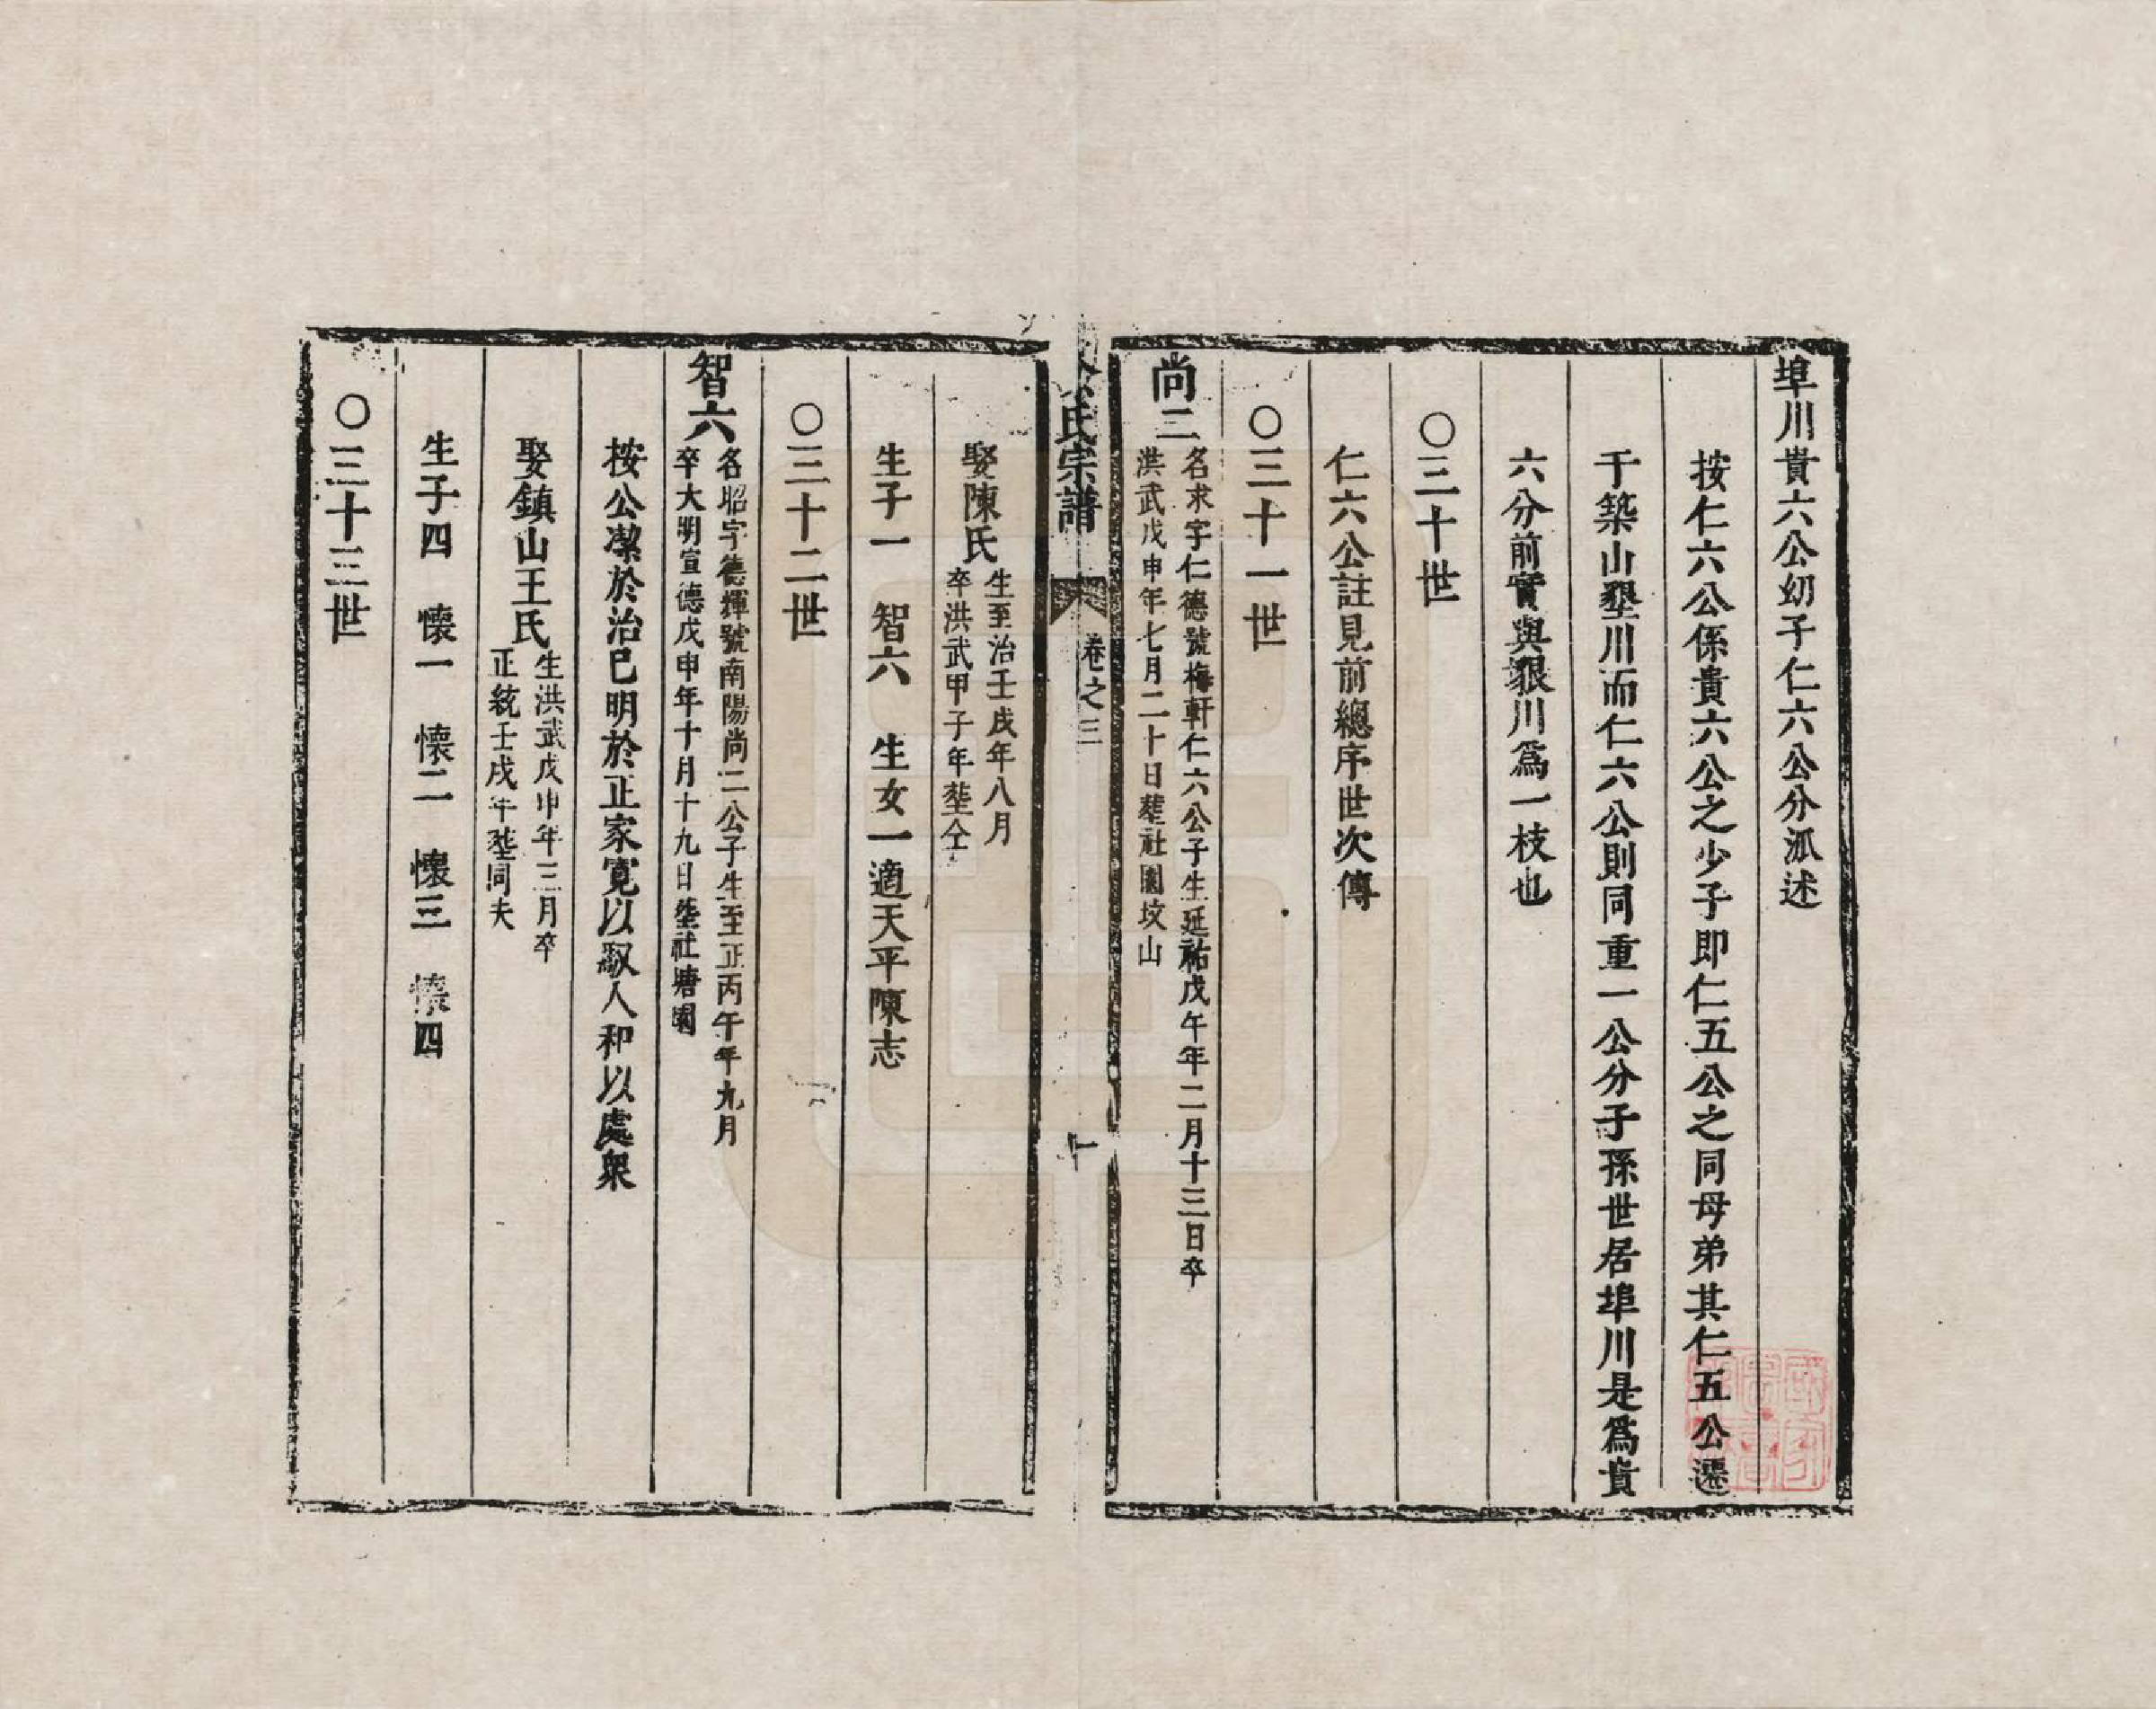 埠川貴六公幼子仁六公分派述
按仁六公係貴六公之少子即仁五公之同母弟其仁五公遷
于築山墾川而仁六公則同重一公分子孫世居埠川是爲貴
六分前實與狠川爲一枝也
〇三十世
仁六公註見前總序世次傳
〇三十一世
尚三
名求字仁德號梅軒仁六公子生延祐戊午年二月十三日卒
洪武戊申年七月二十日塟社園坟山
氏宗譜
卷之三
十
娶陳氏
生至治壬戌年八月
卒洪武甲子年塟仝
生子一 智六 生女一適天平陳志
〇三十二世
智六
名昭字德揮號南陽尚二公子生至正丙午年九月
卒大明宣德戊申年十月十九日塟社塘園
按公潔於治已明於正家寬以馭人和以處衆
娶鎮山王氏
生洪武戊申年三月卒
正統壬戌年塟同夫
生子四 懷一 懷二 懷三 懷四
〇三十三世